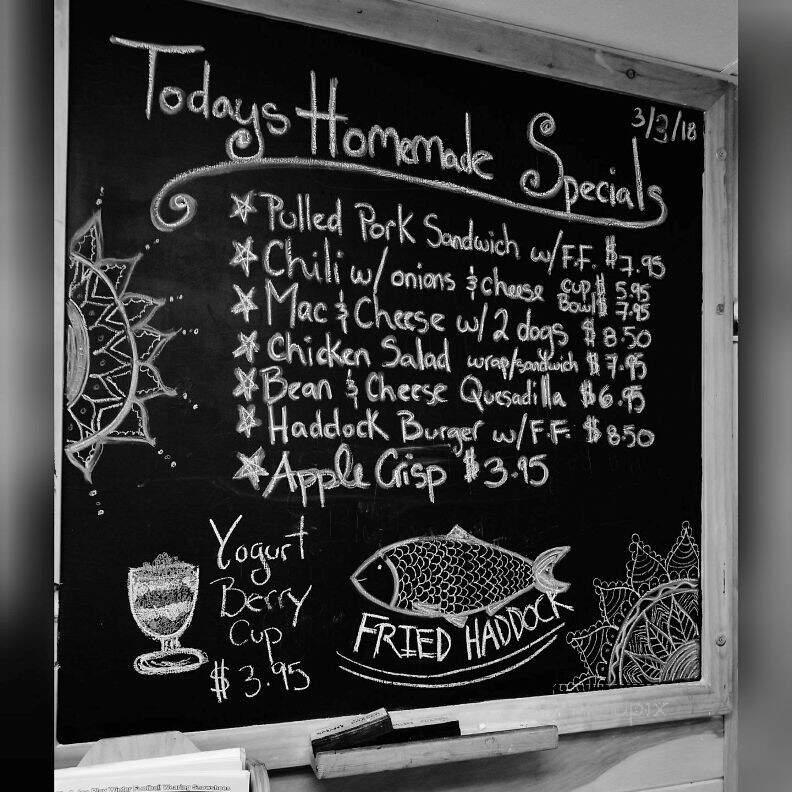 Todays Homemade Specials
3/3/18
Pulled Pork Sandwich w/F.F. $7.95
Chili w/ onions & cheese cup $ 5.95
Bowl $ 7.95
Mac & Cheese w/ 2 dogs $8.50
Chicken Salad wrap/sandwich $7.95
Bean & Cheese Quesadilla $6.95
Haddock Burger w/F.F. $8.50
Apple Crisp $3.95
Yogurt
Berry
Cup
$3.95
FRIED HADDOCK
Play Winter Football Wearing Snowshoes